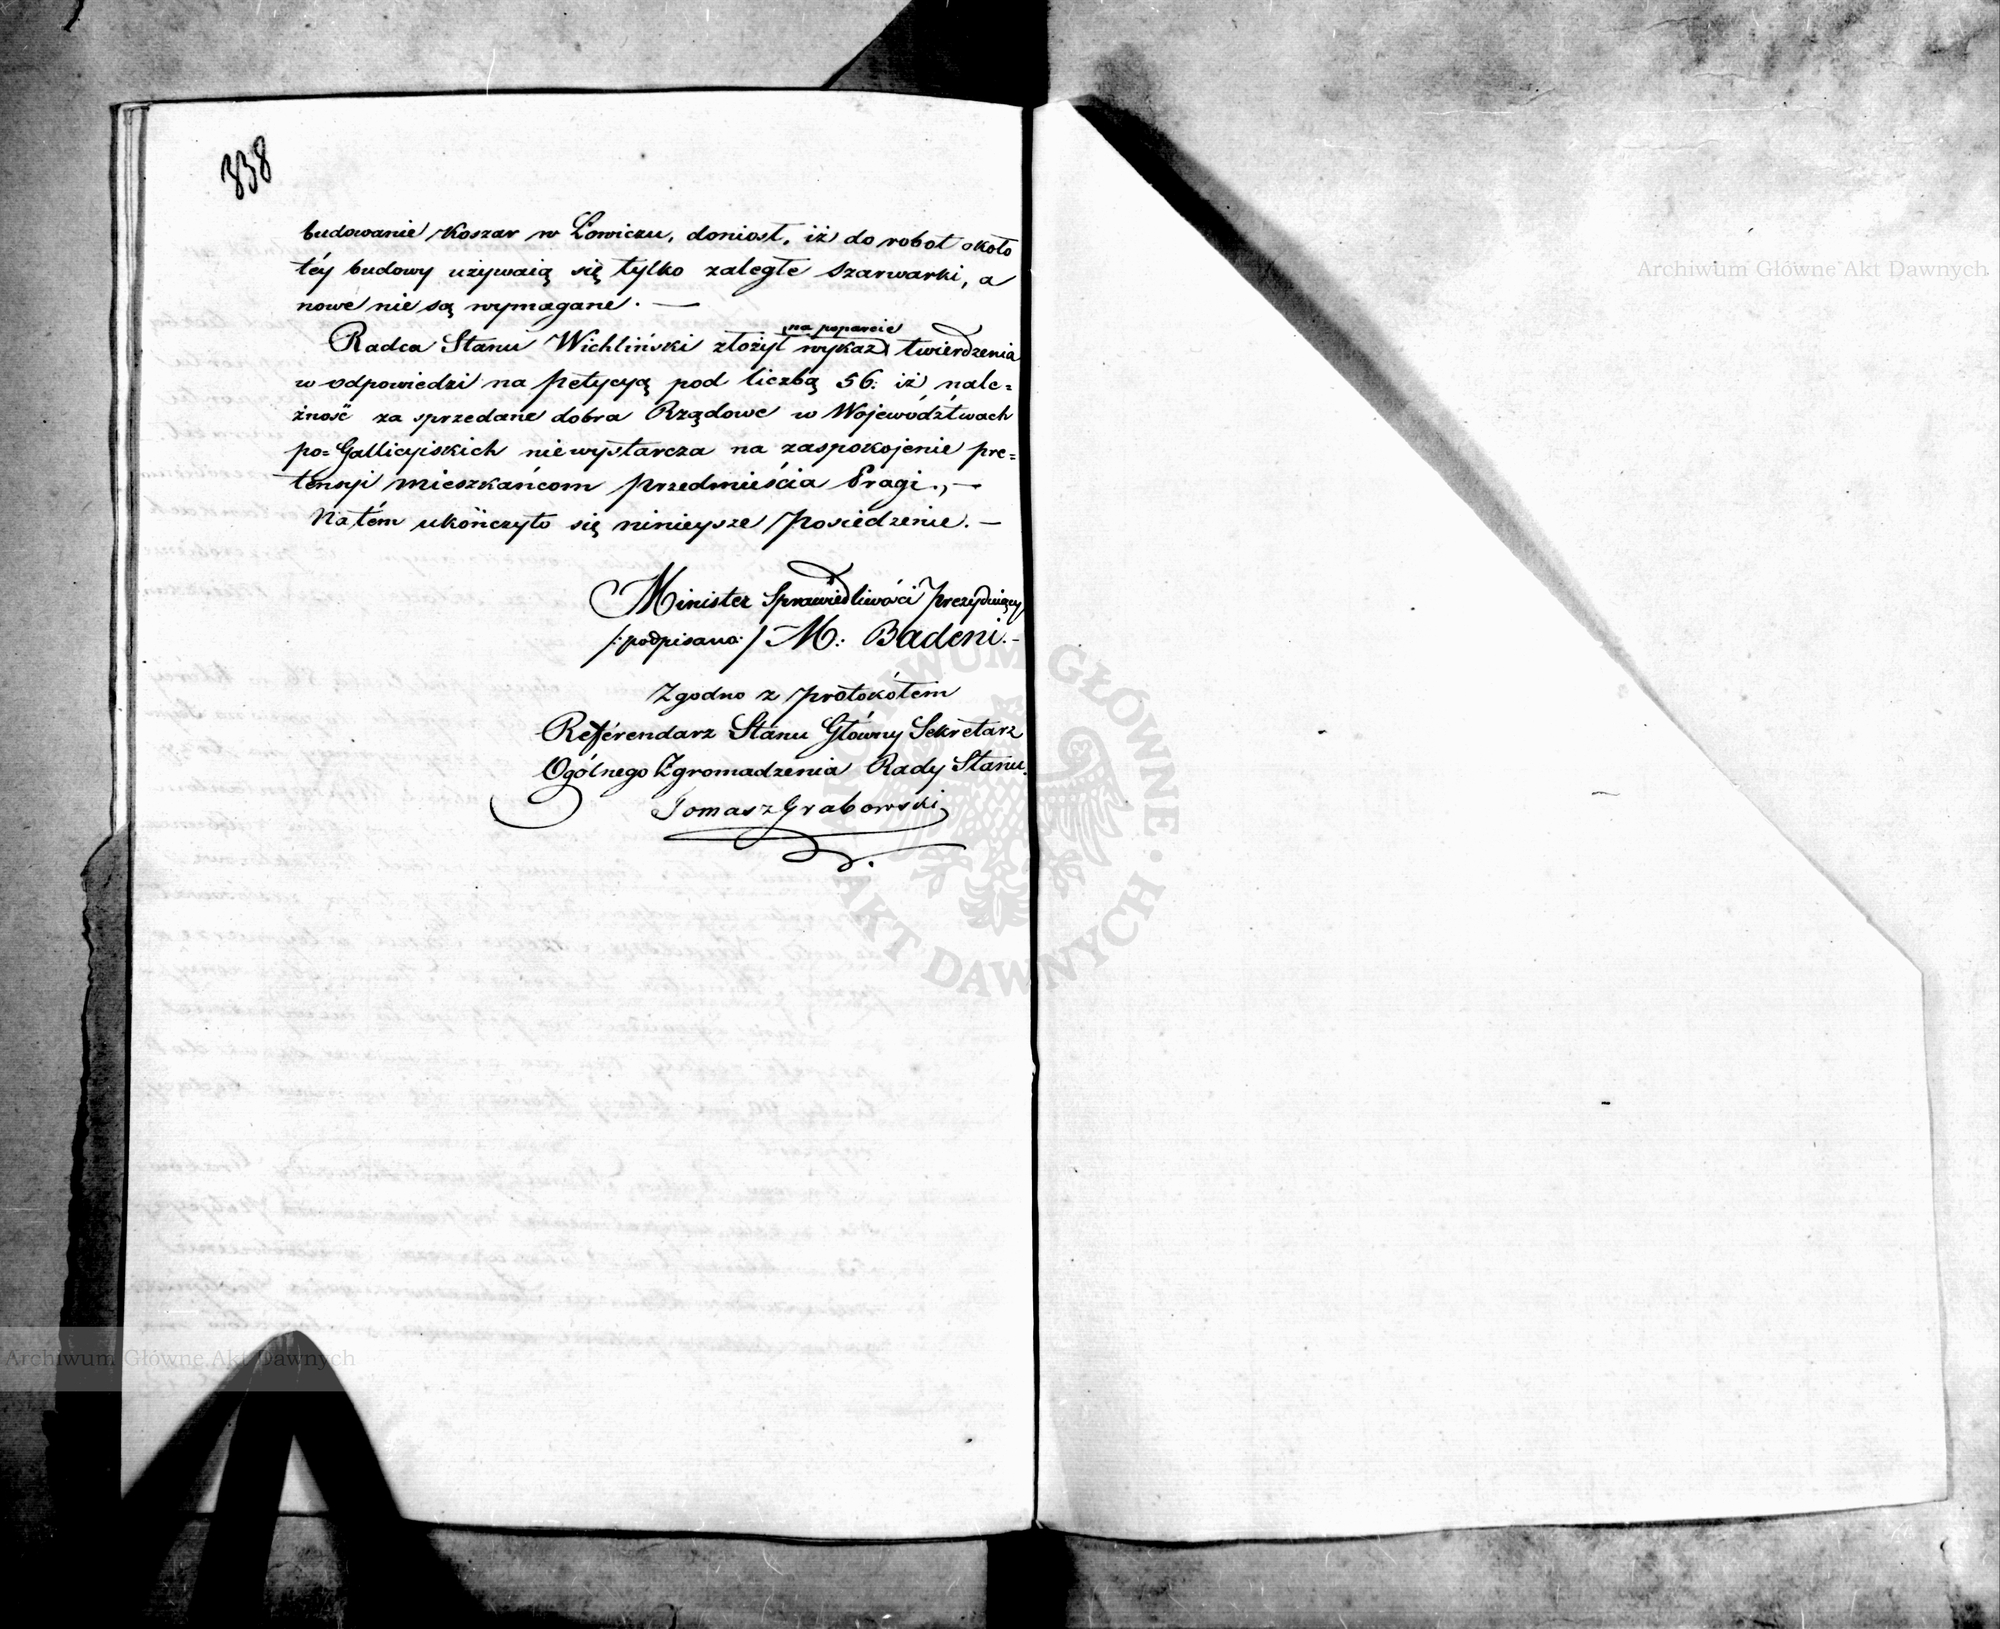 338
budowanie Koszar w Łowiczu, doniosł, iż do robot około
téy budowy używaią się tylko zaległe szarwarki, a
nowe nie są wymagane. —
na poparcie
Radca Stanu Wichliński złożył wykaz twierdzenia
w odpowiedzi na petycyą pod liczbą 56: iż nale=
żność za sprzedane dobra Rządowe w Województwach
po=Gallicyiskich niewystarcza na zaspokojenie pre=
tensyi mieszkańcom przedmieścia Pragi., —
Na tém ukończyło się ninieysze Posiedzenie. —
Minister Sprawiedliwości Prezyduiący
/:podpisano:/ M: Badeni. —
Zgodno z protokółem
Referendarz Stanu Główny Sekretarz
Ogólnego Zgromadzenia Rady Stanu.
Tomasz Grabowski
Archiwum Główne Akt Dawnych
ARCHIWUM GŁÓWNE · AKT DAWNYCH ·
Archiwum Główne Akt Dawnych